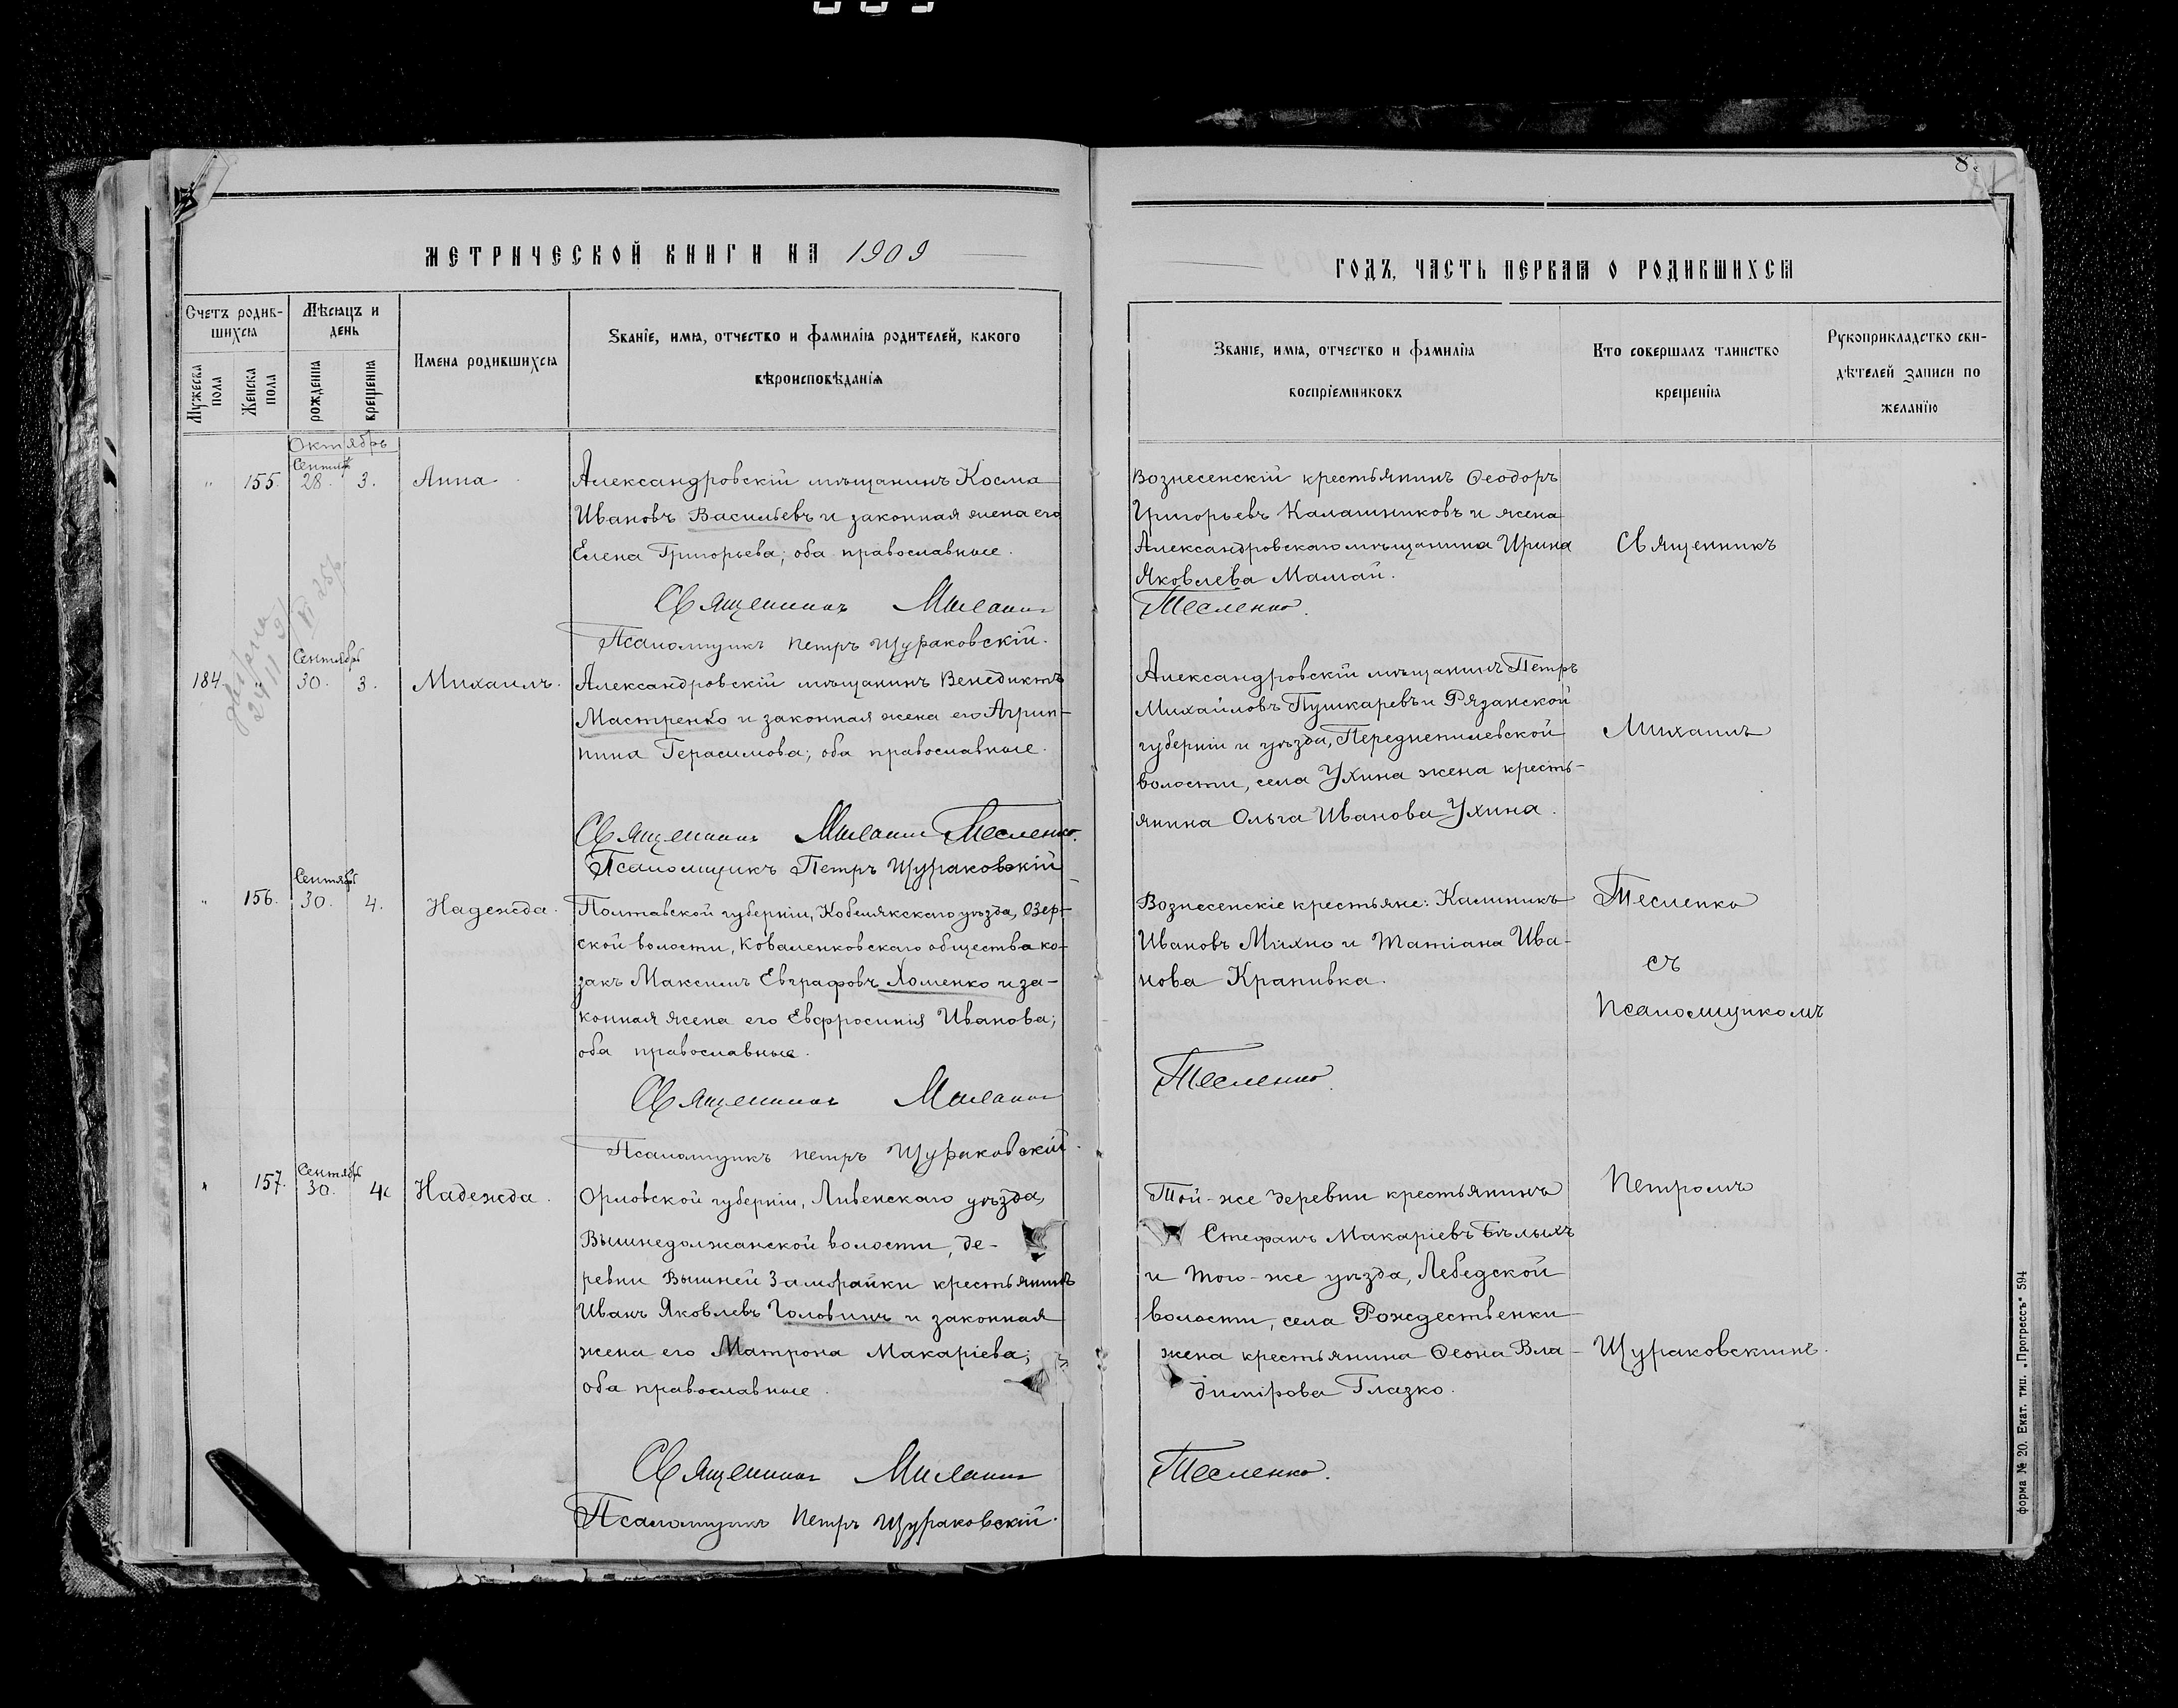 МЕТРИЧЕСКОЙ КНИГИ НА 1909
Счетъ родив-
шихся
Мѣсяцъ и
день
Имена родившихся
Званіе, имя, отчество и фамилія родителей, какого
вѣроисповѣданія
Мужеска
пола
Женска
пола
рожденія
крещенія
Октябрь
Сентяб
" 155. 28. 3. Анна
Александровскій мѣщанинъ Косма
Ивановъ Васильевъ и законная жена его
Елена Григорьева; оба православные.
Священникъ Михаилъ
Псаломщикъ Петръ Щураковскій.
Сентябрь
184. " 30. 3. Михаилъ.
Александровскій мѣщанинъ Венедиктъ
Мастренко и законная жена его Агрип-
пина Герасимова; оба православные.
Священникъ Михаилъ Тесленко.
Псаломщикъ Петръ Щураковскій
Сентябрь
" 156. 30. 4. Надежда.
Полтавской губерніи, Кобелякскаго уѣзда, Озер-
ской волости, Коваленковскаго общества ко-
закъ Максимъ Евграфовъ Хоменко и за-
конная жена его Евфросинія Иванова;
оба православные.
Священникъ Михаилъ
Псаломщикъ Петръ Щураковскій.
Сентябрь
" 157. 30. 4. Надежда.
Орловской губерніи, Ливенскаго уѣзда,
Вышнедолжанской волости, де-
ревни Вышней Заморайки крестьянинъ
Иванъ Яковлевъ Головинъ и законная
жена его Матрона Макаріева;
оба православные.
Священникъ Михаилъ
Псаломщикъ Петръ Щураковскій.
8
ГОДЪ, ЧАСТЬ ПЕРВАЯ О РОДИВШИХСЯ
Званіе, имя, отчество и фамилія
воспріемниковъ
Кто совершалъ таинство
крещенія
Рукоприкладство сви-
дѣтелей записи по
желанію
Вознесенскій крестьянинъ Ѳеодоръ
Григорьевъ Калашниковъ и жена
Александровскаго мѣщанина Ирина
Яковлева Мамай.
Тесленко.
Александровскій мѣщанинъ Петръ
Михайловъ Пушкаревъ и Рязанской
губерніи и уѣзда, Передненилевской
волости, села Ухина жена кресть-
янина Ольга Иванова Ухина.
Вознесенскіе крестьяне: Калиникъ
Ивановъ Михно и Татіана Ива-
нова Крапивка.
Тесленко.
Той-же деревни крестьянинъ
Стефанъ Макаріевъ Бѣлыхъ
и того-же уѣзда, Лебедской
волости, села Рождественки
жена крестьянина Ѳеона Вла-
димірова Глазко.
Тесленко.
Священникъ
Михаилъ
Тесленко
съ
Псаломщикомъ
Петромъ
Щураковскимъ.
Форма № 20. Екат. тип. „Прогрессъ" 594